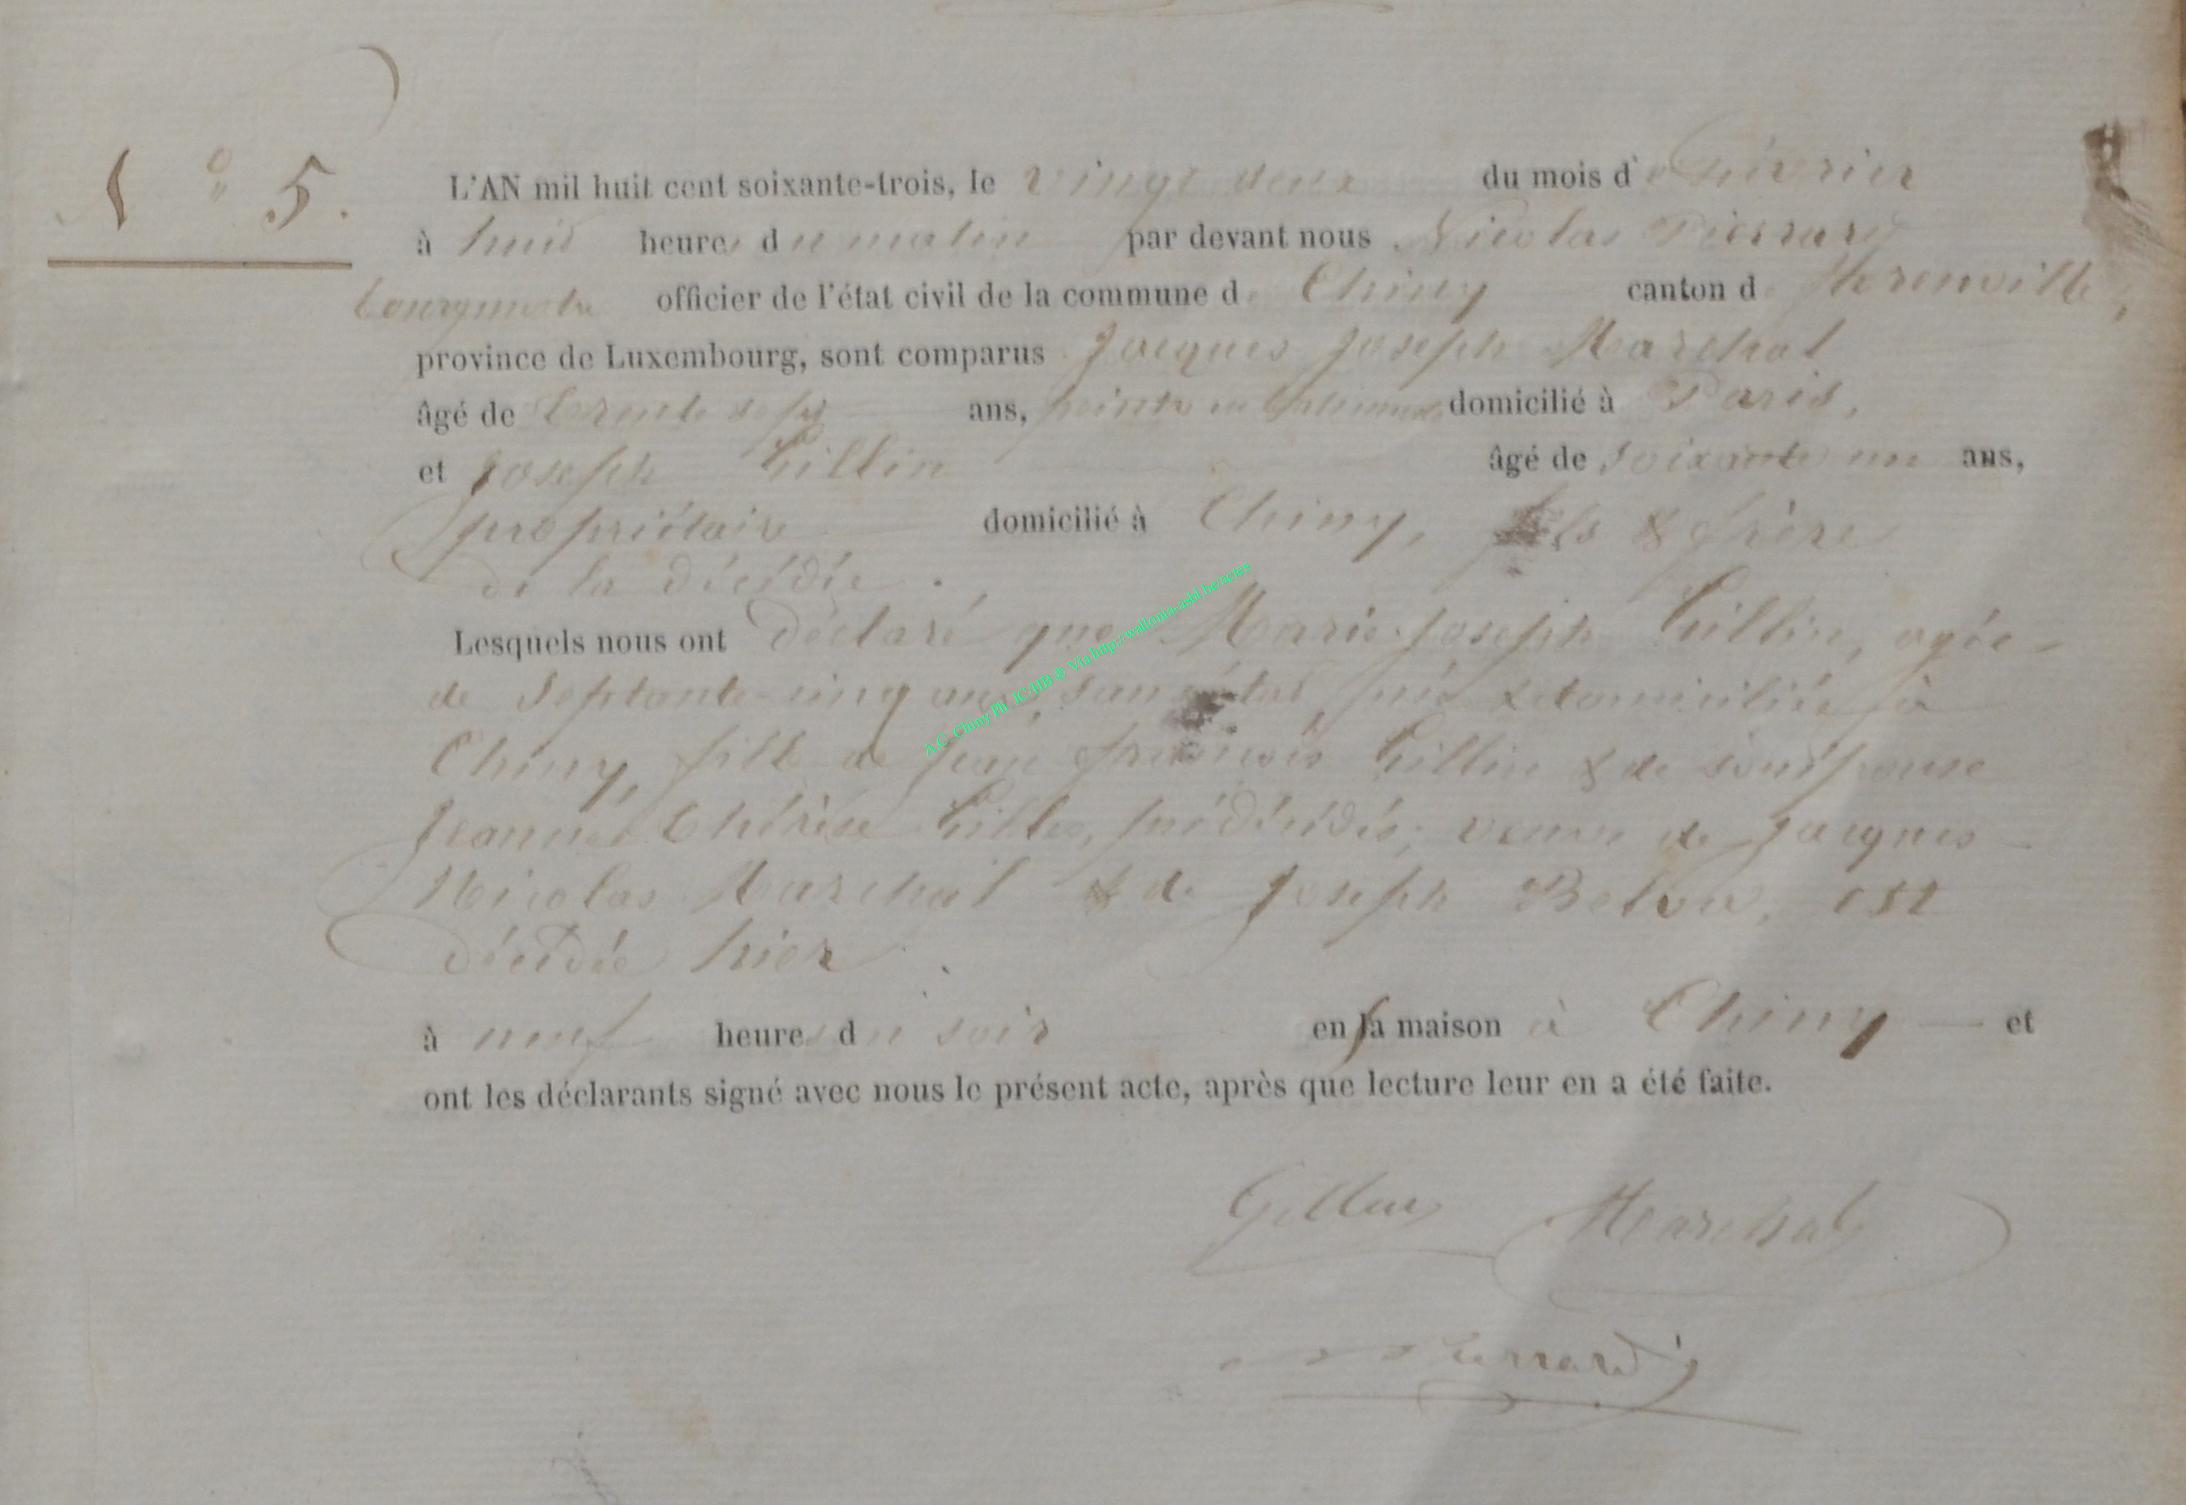 N° 5.
L'AN mil huit cent soixante-trois, le vingt deux du mois de février
à huit heures du matin par devant nous Nicolas Pierrard
bourgmestre officier de l'état civil de la commune de Chiny canton de Florenville,
province de Luxembourg, sont comparus Jacques Joseph Marchal
âgé de trente sept ans, peintre en domicilié à Paris,
et Joseph Gillin âgé de soixante un ans,
propriétaire domicilié à Chiny, fils & frère
de la décédée.
Lesquels nous ont déclaré que Marie Joseph Gillin, agée
de septante-cinq ans, sans état, née & domiciliée à
Chiny, fille de Jean françois Gillin & de son épouse
Jeanne Thérèse Gilles, prédécédés, veuve de Jacques
Nicolas Marchal & de Joseph est
décédée hier
à neuf heures du soir en sa maison à Chiny et
ont les déclarants signé avec nous le présent acte, après que lecture leur en a été faite.
Marchal
Pierrard
A.C. Chiny Ph. JC/HB @ Via http://wallonia-asbl.be/actes